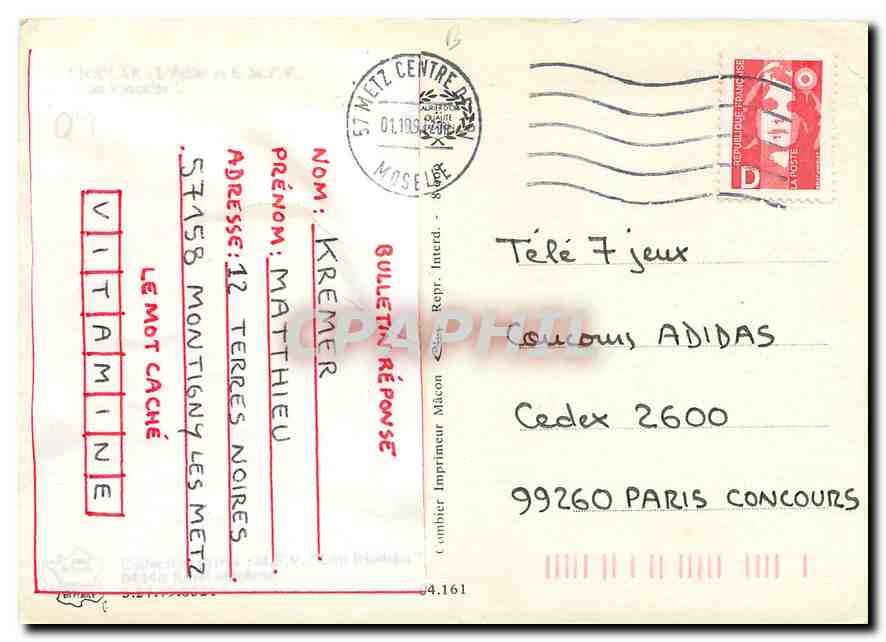 BULLETIN RÉPONSE
NOM: KREMER
PRÉNOM: MATTHIEU
ADRESSE: 12 TERRES NOIRES.
57158 MONTIGNY LES METZ
LE MOT CACHÉ
VITAMINE
57 METZ CENTRE
MOSELLE
Combier Imprimeur Mâcon
Repr. Interd. -
04.161
RÉPUBLIQUE FRANÇAISE
LA POSTE
D
Télé 7 jeux
Concours ADIDAS
Cedex 2600
99260 PARIS CONCOURS
CPAPHIL